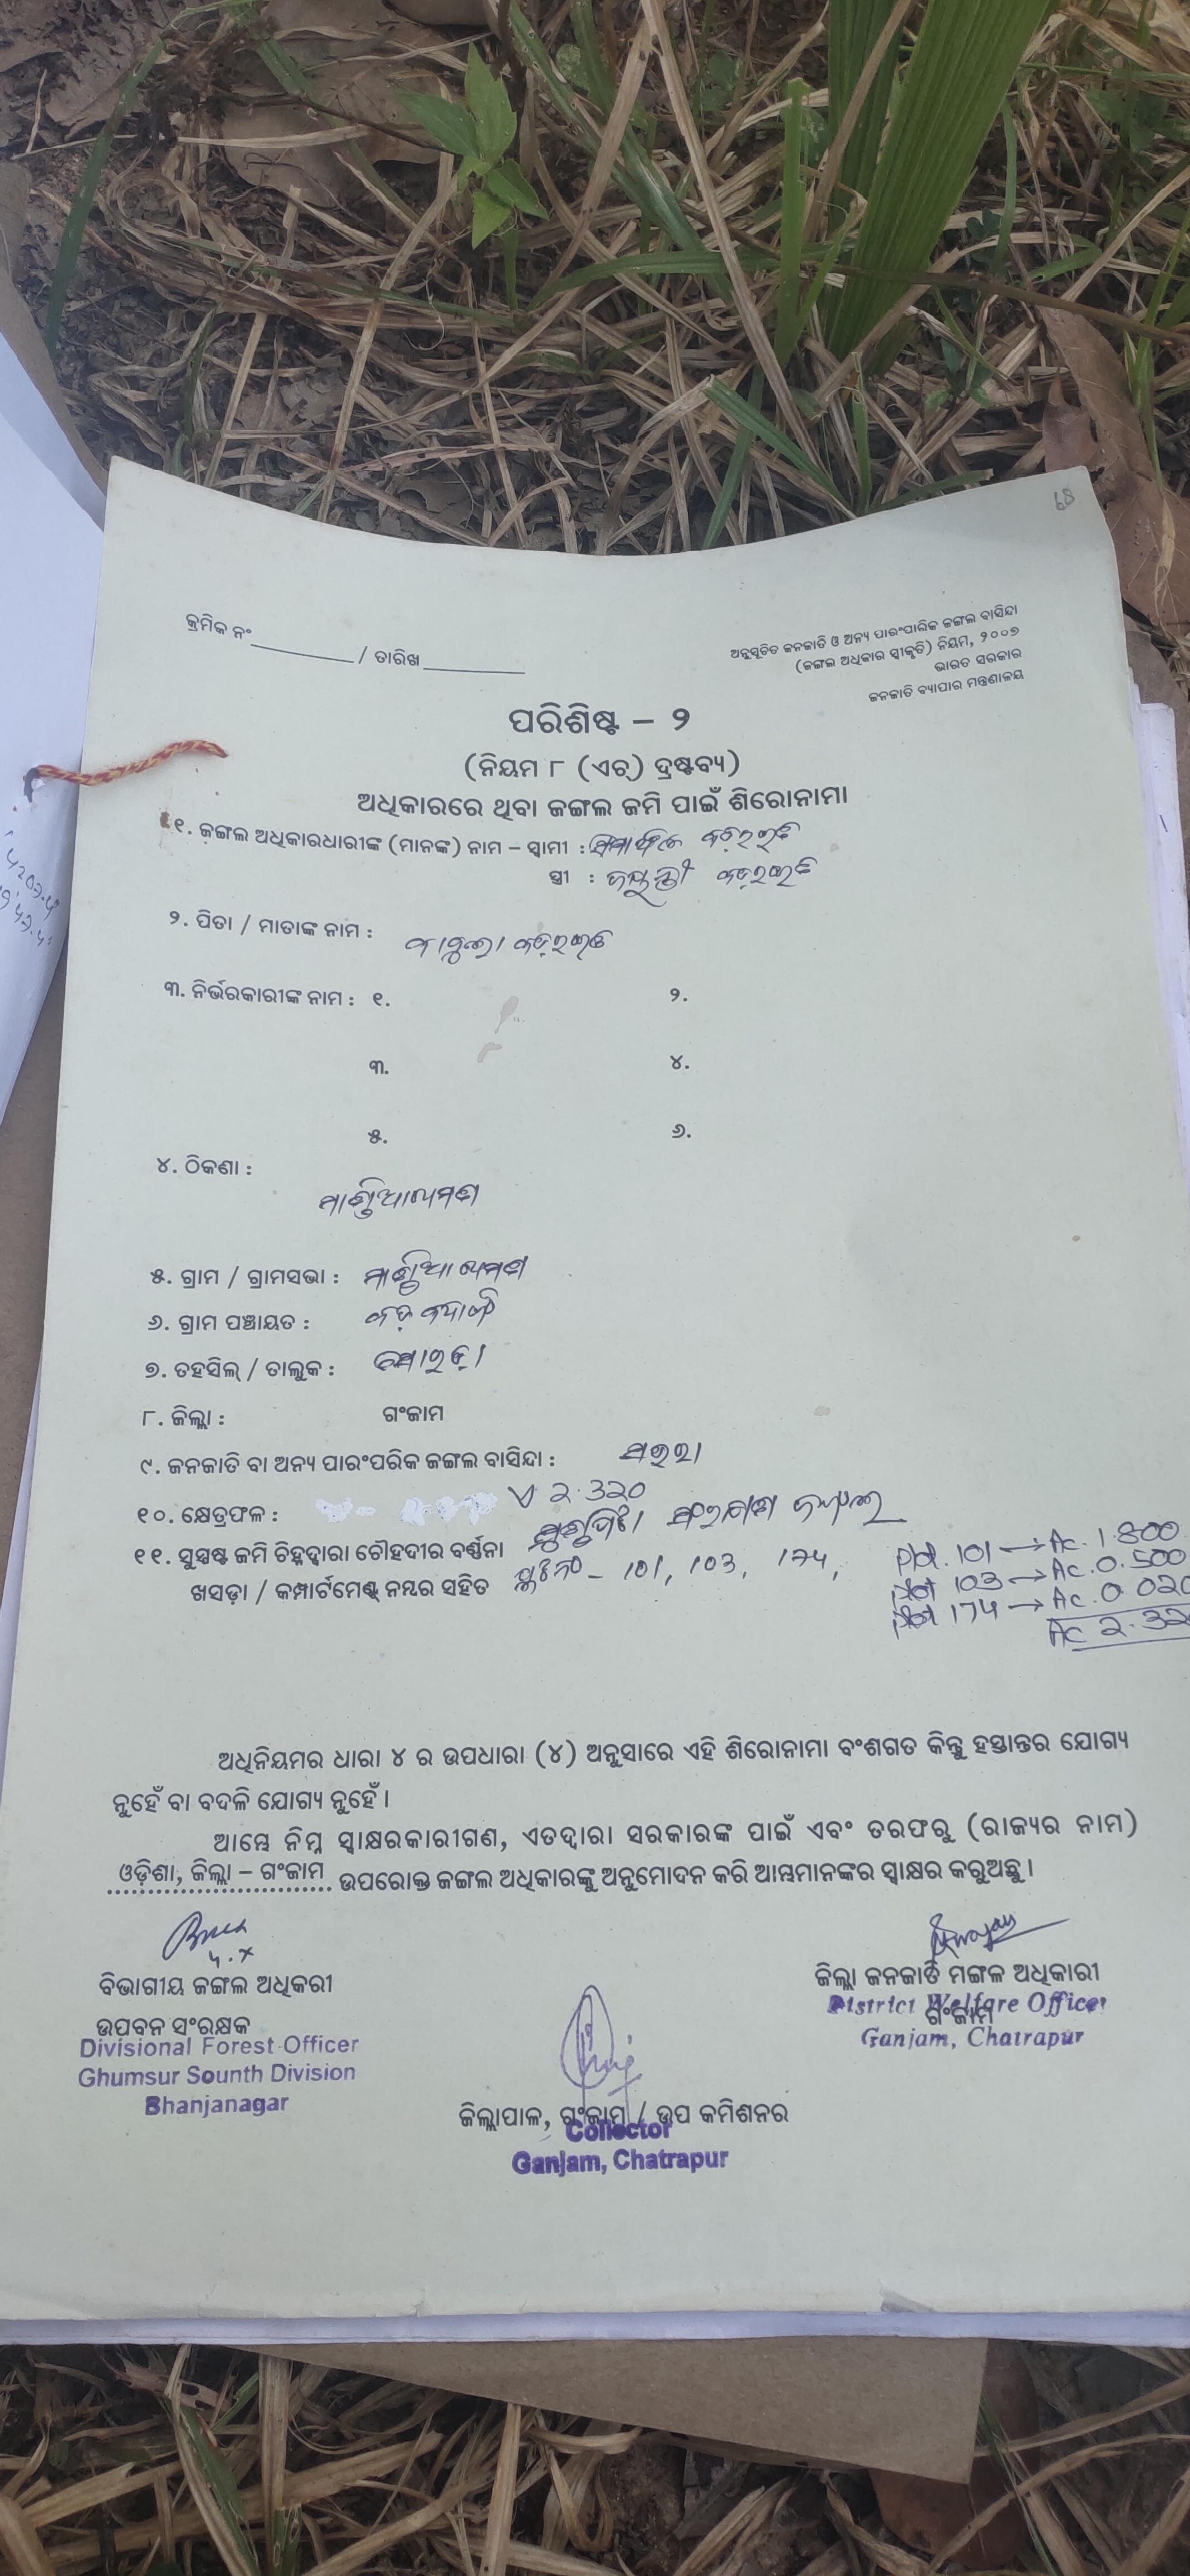 68
କ୍ରମିକ ନଂ ________ / ତାରିଖ ________
ଅନୁସୂଚିତ ଜନଜାତି ଓ ଅନ୍ୟ ପାରଂପାରିକ ଜଙ୍ଗଲ ବାସିନ୍ଦା
(ଜଙ୍ଗଲ ଅଧିକାର ସ୍ୱୀକୃତି) ନିୟମ, ୨୦୦୭
ଭାରତ ସରକାର
ଜନଜାତି ବ୍ୟାପାର ମନ୍ତ୍ରଣାଳୟ
ପରିଶିଷ୍ଟ – ୨
(ନିୟମ ୮ (ଏଚ୍) ଦ୍ରଷ୍ଟବ୍ୟ)
ଅଧିକାରରେ ଥିବା ଜଙ୍ଗଲ ଜମି ପାଇଁ ଶିରୋନାମା
୧. ଜଙ୍ଗଲ ଅଧିକାରଧାରୀଙ୍କ (ମାନଙ୍କ) ନାମ – ସ୍ୱାମୀ :
ସ୍ତ୍ରୀ : ଜୟନ୍ତୀ
୨. ପିତା / ମାତାଙ୍କ ନାମ :
୩. ନିର୍ଭରକାରୀଙ୍କ ନାମ : ୧. ୨.
୩. ୪.
୫. ୬.
୪. ଠିକଣା :
୫. ଗ୍ରାମ / ଗ୍ରାମସଭା :
୬. ଗ୍ରାମ ପଞ୍ଚାୟତ :
୭. ତହସିଲ୍ / ତାଲୁକ : ସୋରଡ଼ା
୮. ଜିଲ୍ଲା : ଗଂଜାମ
୯. ଜନଜାତି ବା ଅନ୍ୟ ପାରଂପରିକ ଜଙ୍ଗଲ ବାସିନ୍ଦା : ସଉରା
୧୦. କ୍ଷେତ୍ରଫଳ : 2.320
୧୧. ସୁସ୍ପଷ୍ଟ ଜମି ଚିହ୍ନଦ୍ୱାରା ଚୌହଦୀର ବର୍ଣ୍ଣନା
ଖସଡ଼ା / କମ୍ପାର୍ଟମେଣ୍ଟ ନମ୍ବର ସହିତ 101, 103, 174,
Plot. 101 → Ac. 1.800
Plot 103 → Ac. 0.500
Plot 174 → Ac. 0.020
Ac 2.32
ଅଧିନିୟମର ଧାରା ୪ ର ଉପଧାରା (୪) ଅନୁସାରେ ଏହି ଶିରୋନାମା ବଂଶଗତ କିନ୍ତୁ ହସ୍ତାନ୍ତର ଯୋଗ୍ୟ
ନୁହେଁ ବା ବଦଳି ଯୋଗ୍ୟ ନୁହେଁ ।
ଆମ୍ଭେ ନିମ୍ନ ସ୍ୱାକ୍ଷରକାରୀଗଣ, ଏତଦ୍ୱାରା ସରକାରଙ୍କ ପାଇଁ ଏବଂ ତରଫରୁ (ରାଜ୍ୟର ନାମ)
ଓଡ଼ିଶା, ଜିଲ୍ଲା – ଗଂଜାମ ଉପରୋକ୍ତ ଜଙ୍ଗଲ ଅଧିକାରଙ୍କୁ ଅନୁମୋଦନ କରି ଆମ୍ଭମାନଙ୍କର ସ୍ୱାକ୍ଷର କରୁଅଛୁ ।
ବିଭାଗୀୟ ଜଙ୍ଗଲ ଅଧିକରୀ
ଉପବନ ସଂରକ୍ଷକ
Divisional Forest Officer
Ghumsur Sounth Division
Bhanjanagar
ଜିଲ୍ଲା ଜନଜାତି ମଙ୍ଗଳ ଅଧିକାରୀ
ଗଂଜାମ
District Welfare Officer
Ganjam, Chatrapur
ଜିଲ୍ଲାପାଳ, ଗଂଜାମ / ଉପ କମିଶନର
Collector
Ganjam, Chatrapur